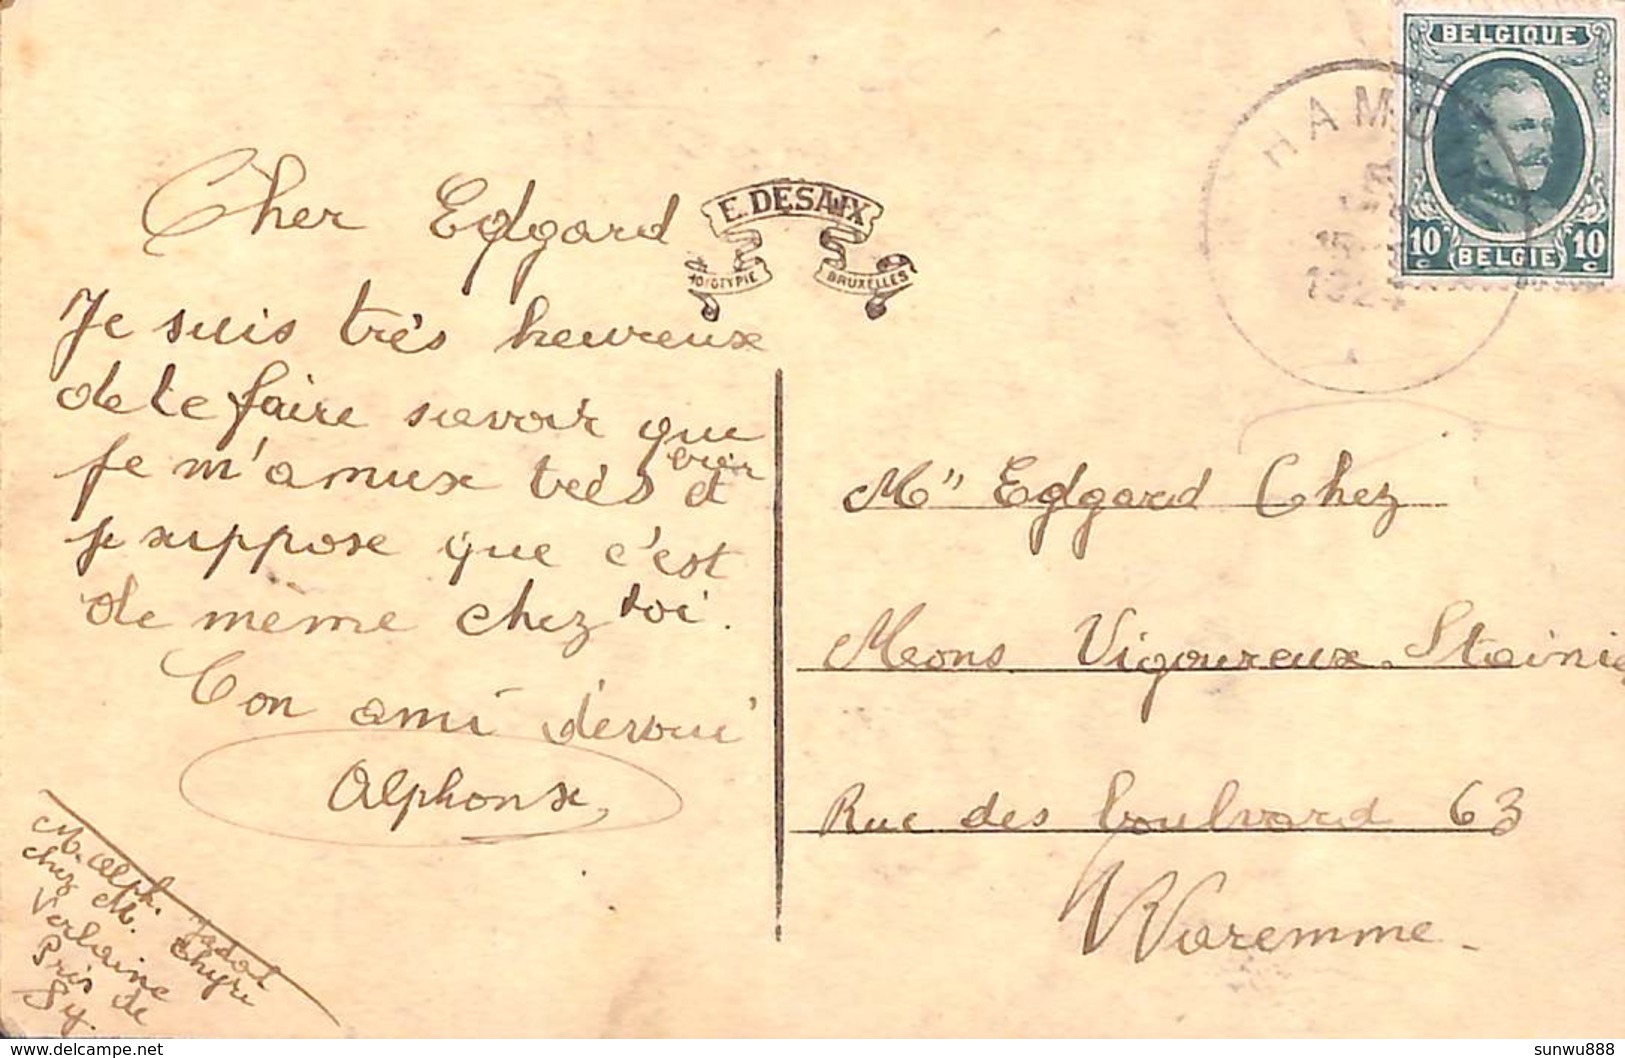 Cher Edgard
Je suis très heureux
de te faire savoir que
je m'amuse très bien et
je suppose que c'est
de même chez toi.
Ton ami dévoué
Alphonse
M. Alph. Jadot
chez M. Thyri
Verlaine
Près de
Sy.
E. DESAIX
BRUXELLES
BELGIQUE
10 c BELGIE 10 c
HAMO
1924
Mr Edgard Chez
Mons Vigoureux-Stainie
Rue des boulvard 63
Waremme
Delcampe.net
sunwu888